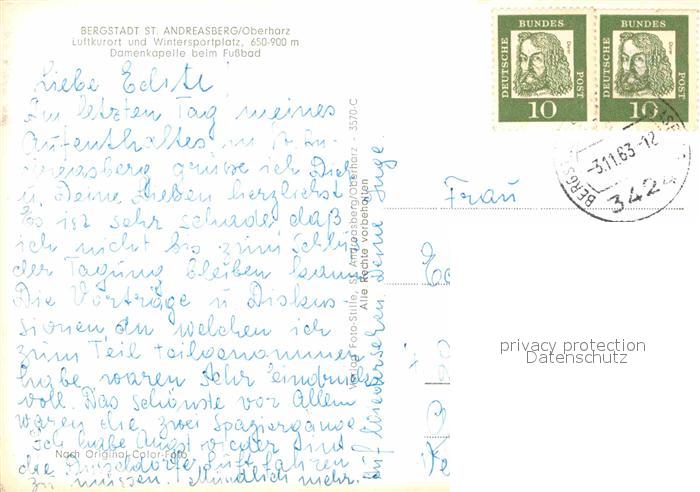 BERGSTADT ST. ANDREASBERG/Oberharz
Luftkurort und Wintersportplatz, 650-900 m
Damenkapelle beim Fußbad
Liebe Edith!
Am letzten Tag meines
Aufenthaltes in St. An-
dreasberg grüsse ich Dich
u. Deine Lieben herzlichst
Es ist sehr schade, daß
ich nicht bis zum Schluß
der Tagung bleiben kann
Die Vorträge u Diskus-
sionen an welchen ich
zum Teil teilgenommen
habe waren sehr eindrucks
voll. Das Schönste vor Allem
waren die zwei Spaziergänge
Ich habe Angst wieder mit
die Luft fahren
zu müssen. Mündlich mehr.
Auf Wiedersehen Deine Inge
Nach Original-Color-Foto
Verlag Foto-Stille, St. Andreasberg/Oberharz - 3570-C
Alle Rechte vorbehalten
DEUTSCHE BUNDES POST
Dürer
10
DEUTSCHE BUNDES POST
Dürer
10
-3.11.63-12
3424
Frau
privacy protection
Datenschutz